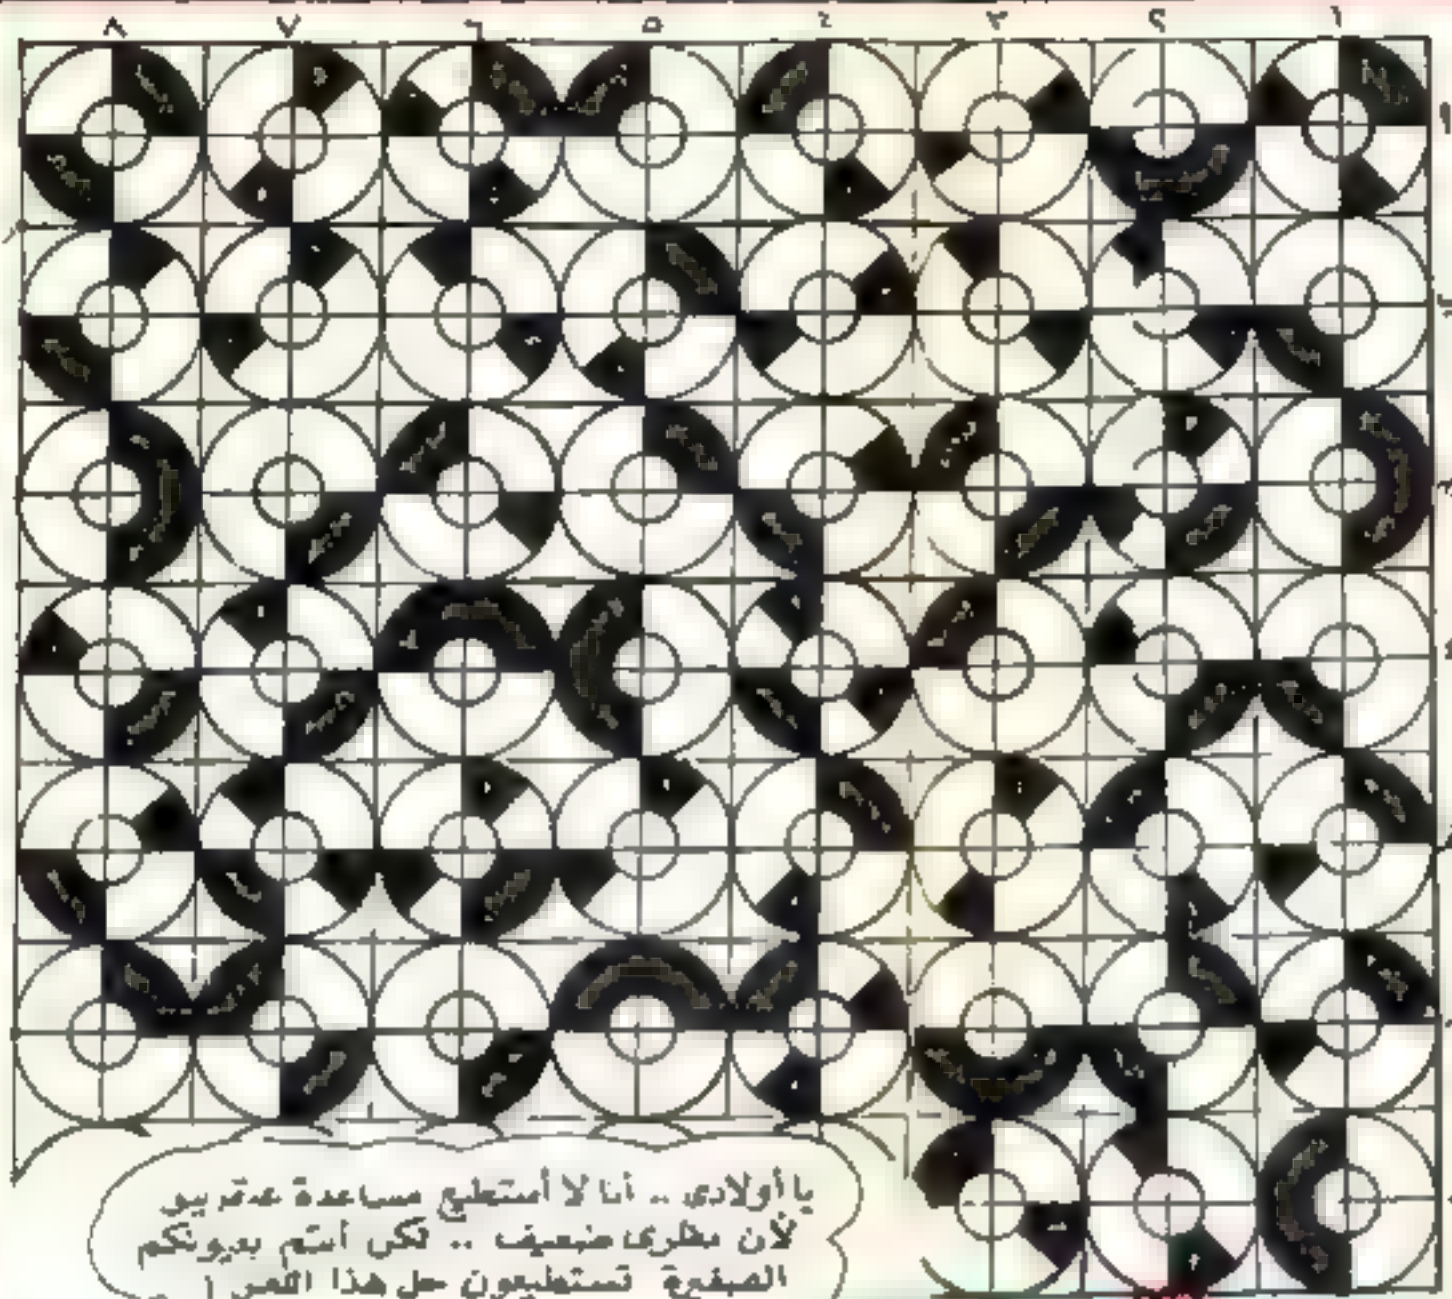 ٨ ٧ ٦ ٥ ٤ ٣ ٢ ١
يا أولادى .. أنا لا أستطيع مساعدة عبقرينو
لأن نظرى ضعيف .. لكن أنتم بعيونكم
الصغيرة تستطيعون حل هذا اللغز !